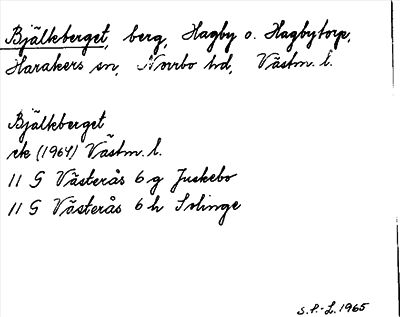 Bjälkeberget, berg, Hagby o. Hagbytorp,
Harakers sn, Norrbo hd, Västm. l.
Bjälkeberget
rk (1964) Västm. l.
11 G Västerås 6 g Juskebo
11 G Västerås 6 h Solinge
S.P.-L. 1965